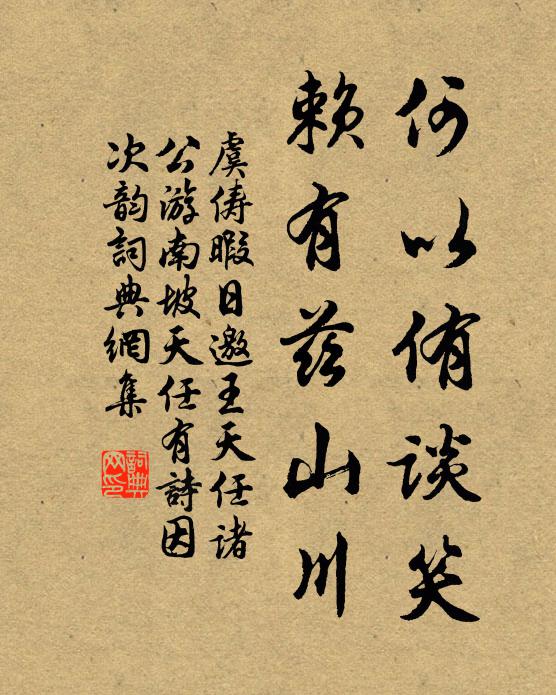 何以侑谈笑
赖有茲山川
虞俦暇日邀王天任诸
公游南坡天任有詩因
次韵詞典網集
詞典
网印